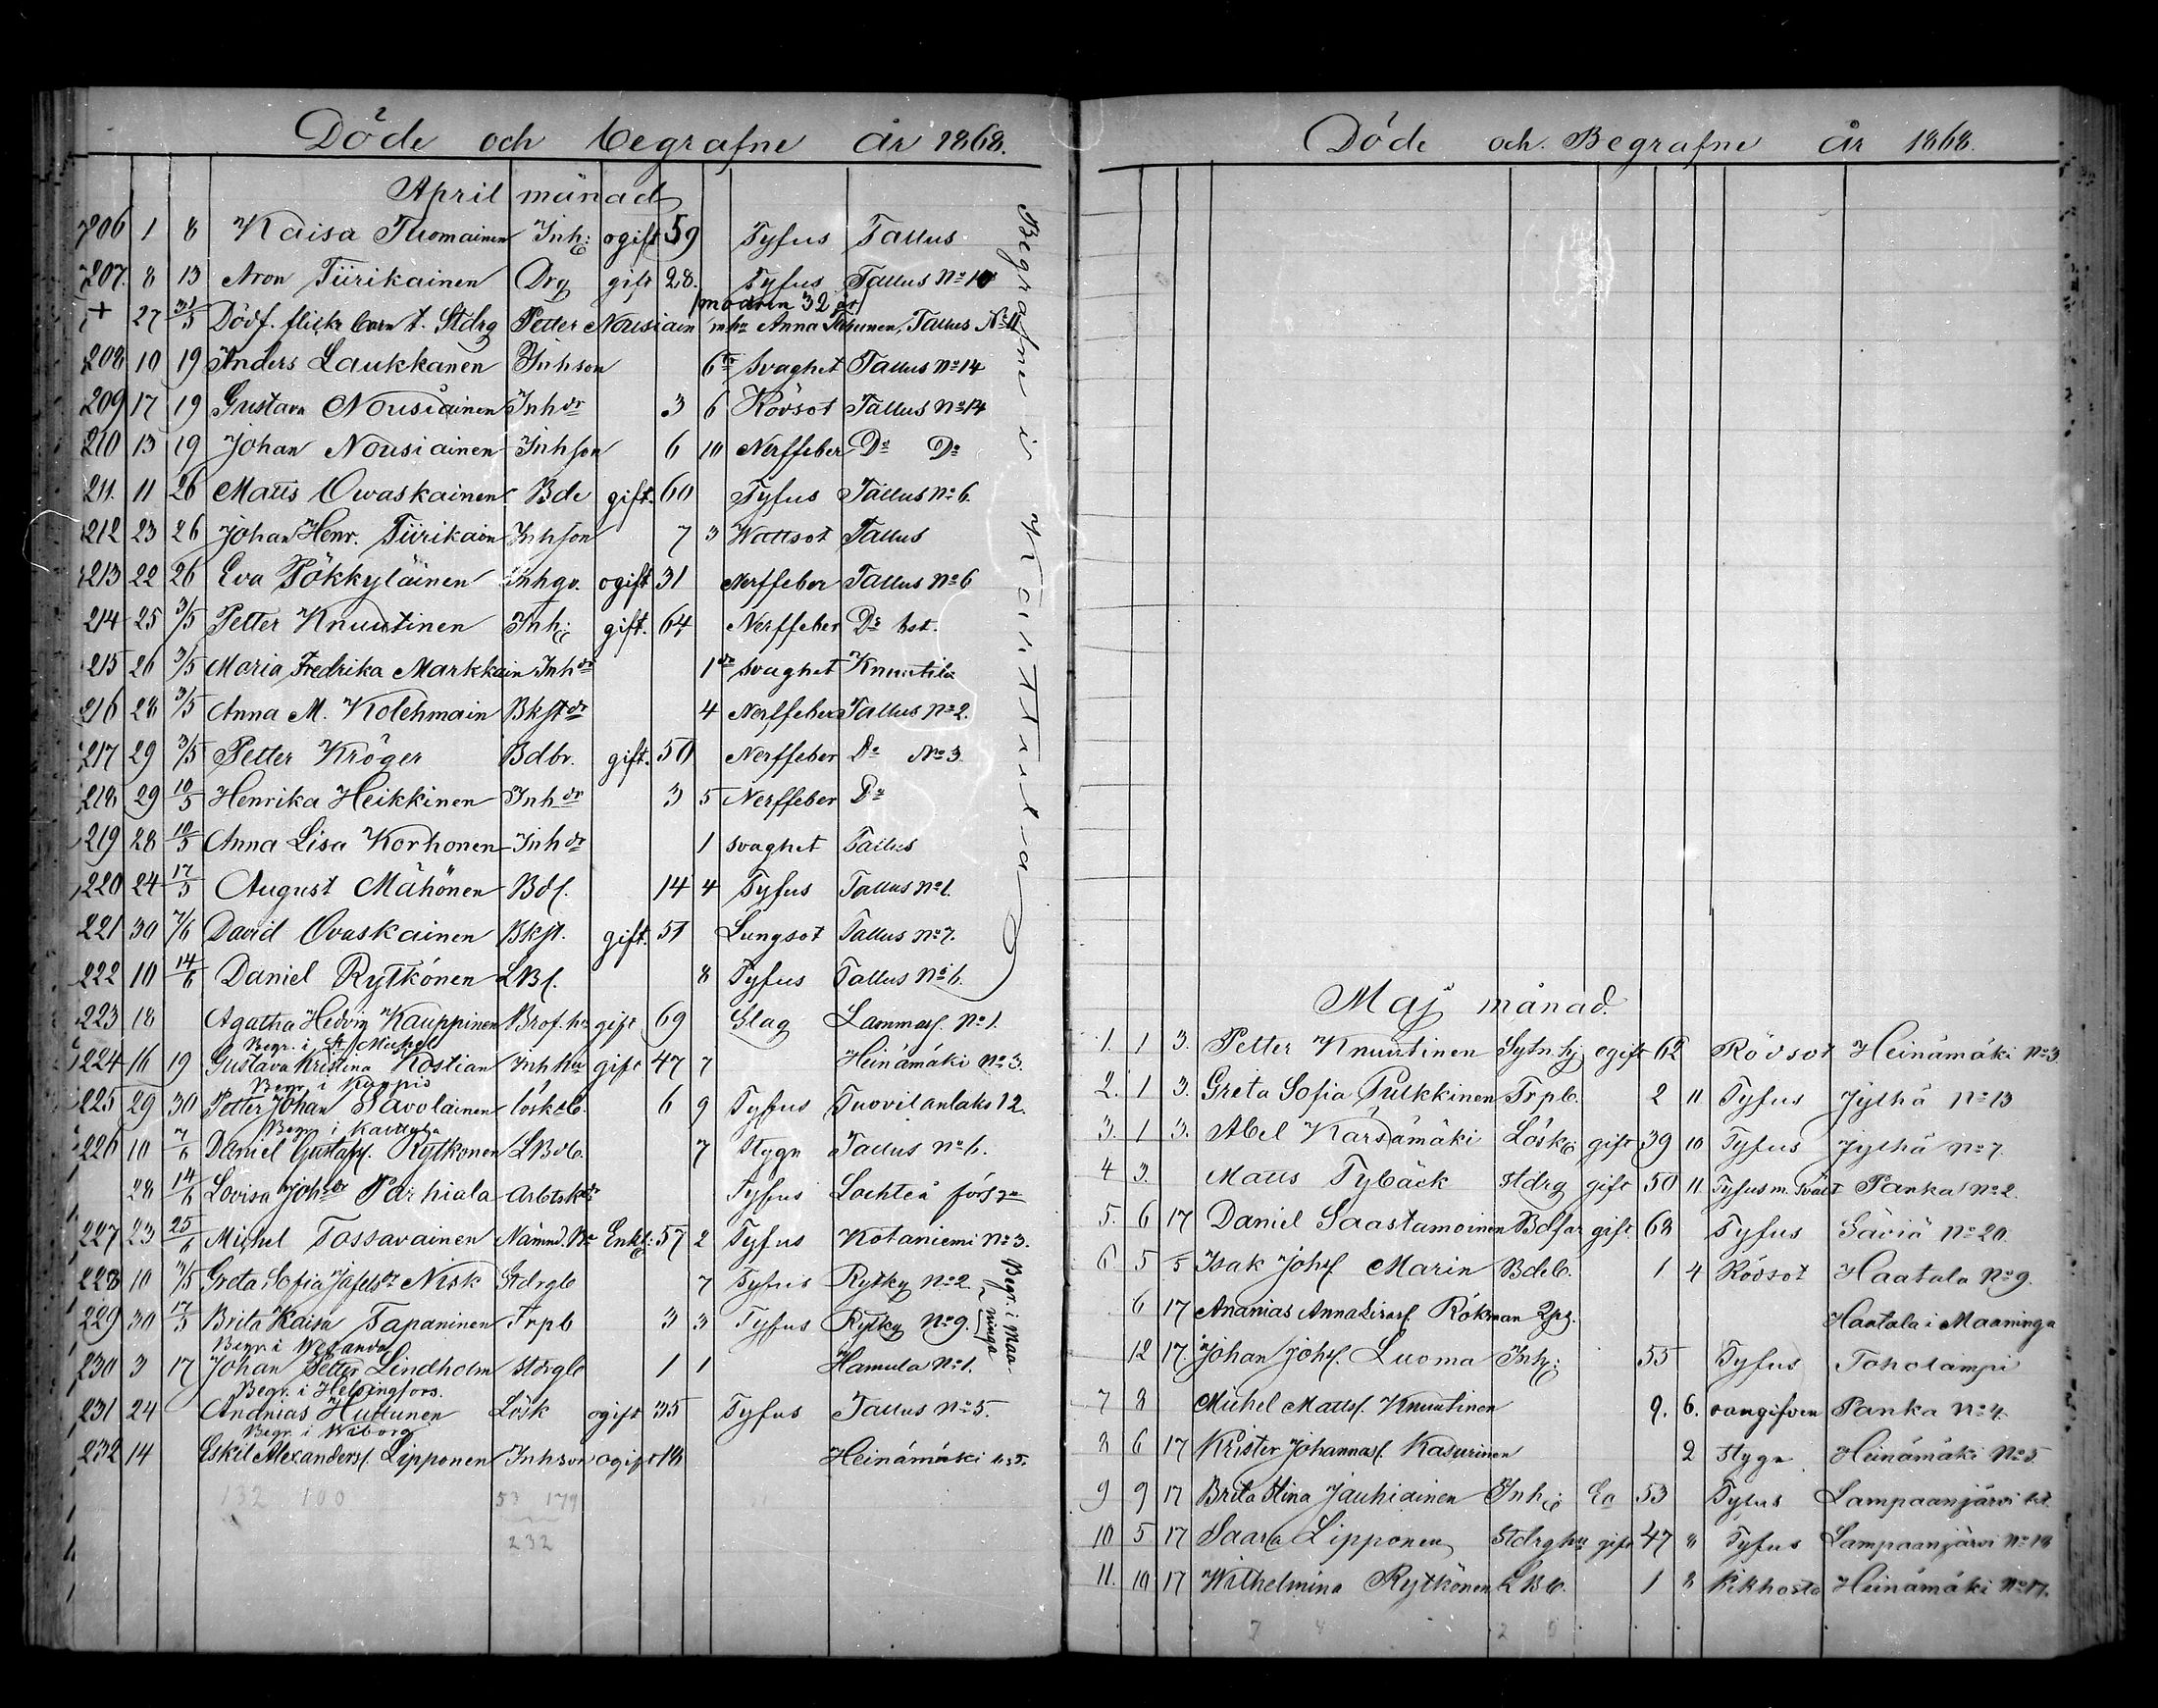 Döde och begrafne år 1868.
April månad
206 1 8 Kaisa Tuomainen Inh: ogift 59 Tyfus Tallus
207. 8 13 Aron Tiirikainen Drg gift 28. Tyfus Tallus No 10
(modren 32 år)
+ 27 31/5 Dödf. flickebarn t. Stdrg Petter Nousiain mhu Anna Tarunen, Tallus No 11
208 10 19 Anders Laukkanen Inhson 6 dr Svaghet Tallus No 14
209 17 19 Gustava Nousiainen Inhdr 3 6 Rödsot Tallus No 14
210 13 19 Johan Nousiainen Inhson 6 10 Nerffeber Do Do
211. 11 26 Matts Owaskainen Bde gift. 60 Tyfus Tallus No 6.
212 23 26 Johan Henr. Tiirikain Inhson 7 3 Wattsot Tallus
213 22 26 Eva Pökkyläinen Inhqv. ogift 31 Nerffeber Tallus No 6
214 25 3/5 Petter Knuutinen Inh: gift. 64 Nerffeber Do bst.
215 26 3/5 Maria Fredrika Markkain Inhdr 1 dr svaghet Knuutila
216 28 3/5 Anna M. Kolehmain Bkstdr 4 Nerffeber Tallus No 2.
217 29 3/5 Petter Kröger Bdbr. gift. 50 Nerffeber Do No 3
218 29 10/5 Henrika Heikkinen Inhdr 3 5 Nerffeber Do
219 28 10/5 Anna Lisa Korhonen Inhdr 1 svaghet Tallus
220 24 17/5 August Mähönen Bds. 14 4 Tyfus Tallus No 1.
221 30 7/6 David Ovaskainen Bkst. gift. 51 Lungsot Tallus No 7.
222 10 14/6 Daniel Rytkönen LBs. 8 Tyfus Tallus No 6.
Begrafne i Karttula
223 18 Agatha Hedvig Kauppinen Prof.hu gift 69 Slag Lammass. No 1.
Begr. i St Michel
224 16 19 Gustava Kristina Kostian Inhhu gift 47 7 Heinämäki No 3.
Begr. i Kuopio
225 29 30 Petter Johan Savolainen löskeb. 6 9 Tyfus Tuovilanlaks 12.
Begr. i Karttula
226 10 7/6 Daniel Gustafs. Rytkonen LBdb. 7 Stygn Tallus No 6.
28 14/6 Lovisa Johsdr Parhiala Arbtskdr Tyfus Lochteå förs:ga
227 23 25/6 Michel Tossavainen Nämnd. Enkl: 57 2 Tyfus Kotaniemi No 3.
228 10 3/5 Greta Sofia Josefsdr Nisk Stdrgb 7 Tyfus Rytky No 2.
229 30 17/5 Brita Kaisa Tapaninen Trpb 3 3 Tyfus Rytky No 9.
Begr. i Maaninga
Begr. i Wesanda
230 3 17 Johan Petter Lindholm stdrgb 1 1 Hamula No 1.
Begr. i Helsingfors.
231 24 Ananias Huttunen Lösk ogift 35 Tyfus Tallus No 5.
Begr. i Wiborg
232 14 Eskil Alexanders. Lipponen Inhson ogift 18 Heinämäki
132 100 53 179
232
Döde och Begrafne år 1868.
Maj månad.
1. 1 3. Petter Knuutinen Sytn.hj ogift 62 Rödsot Heinämäki No 3
2. 1 3. Greta Sofia Pulkkinen Trpb. 2 11 Tyfus Jylhä No 13
3. 1 3. Abel Kärsämäki Lösk: gift 39 10 Tyfus Jylhä No 7.
4 3. Matts Tybäck stdrg gift 50 11 Tyfus m. Tvält Panka No 2.
5. 6 17 Daniel Saastamoinen Bdfar gift. 68 Tyfus Säviä No 20.
6. 5 5 Isak Johs. Marin Bdeb. 1 4 Rödsot Haatala No 9.
6 17 Ananias Annalisas. Rökman Haatala i Maaninga
12 17. Johan Johs. Luoma Inh: 55 Tyfus Toholampi
7 8 Michel Matts. Knuutinen 9. 6. oangifven Panka No 4.
8 6 17 Krister Johannas. Kasurinen 2 stygn Heinämäki No 5.
9 9 17 Brita Stina Jauhiainen Inh: Ea 53 Tyfus Lampaanjärvi bst.
10 5 17 Saara Lipponen Stdrghu gift 47 8 Tyfus Lampaanjärvi No 18
11. 10 17 Wilhelmina Rytkönen LBb. 1 8 Kikhosta Heinämäki No 17.